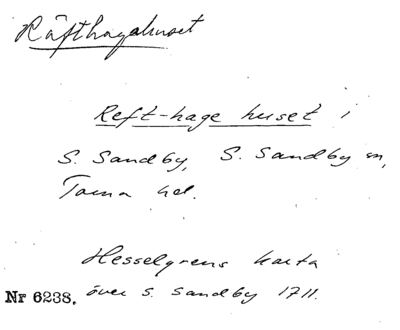 Räfthagahuset
Reft-hage huset i
S. Sandby, S. Sandby sn,
Torna hd.
Hesselgrens karta
Nr 6238. över S. Sandby 1711.